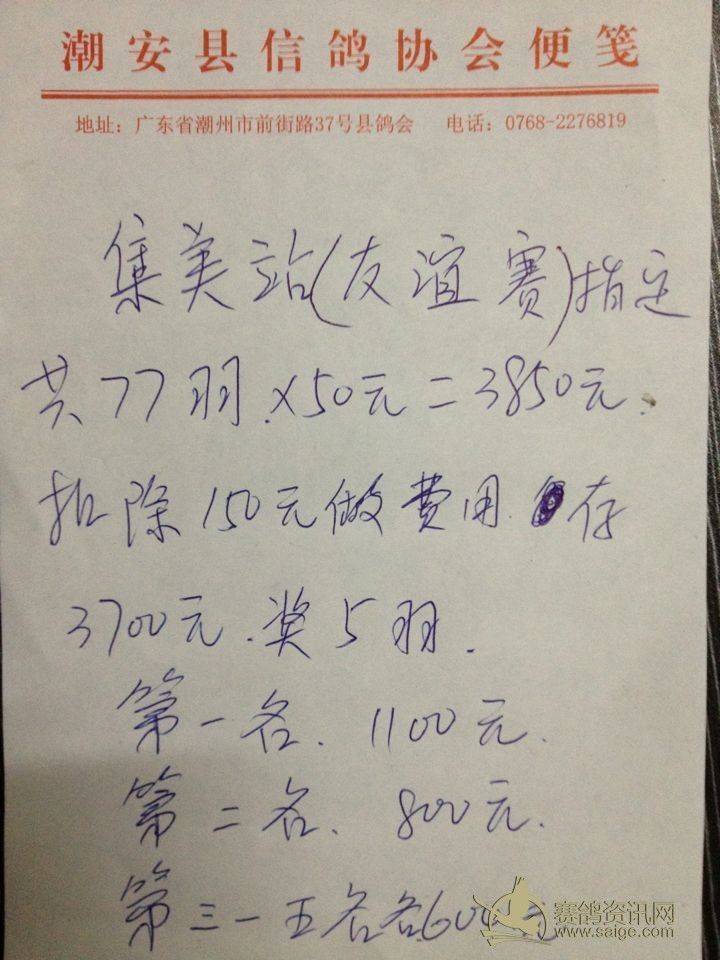 潮安县信鸽协会便笺
地址：广东省潮州市前街路37号县鸽会 电话：0768-2276819
集美站(友谊赛)指定
共77羽.×50元=3850元.
扣除150元做费用.存
3700元.奖5羽.
第一名.1100元.
第二名.800元.
第三一五名各600元
赛鸽资讯网
www.saige.com